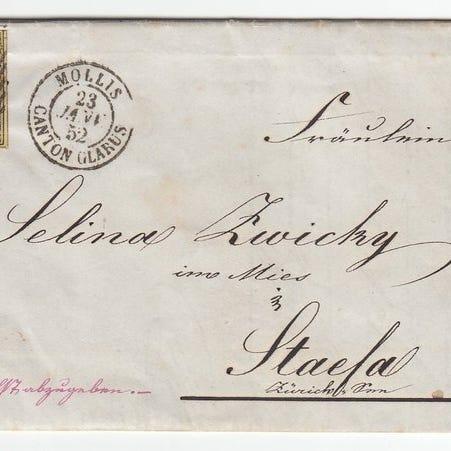 MOLLIS
23
JANV
52
CANTON GLARUS
Fräulein
Selina Zwicky
im Mies
Staefa
Zürich See
abzugeben.